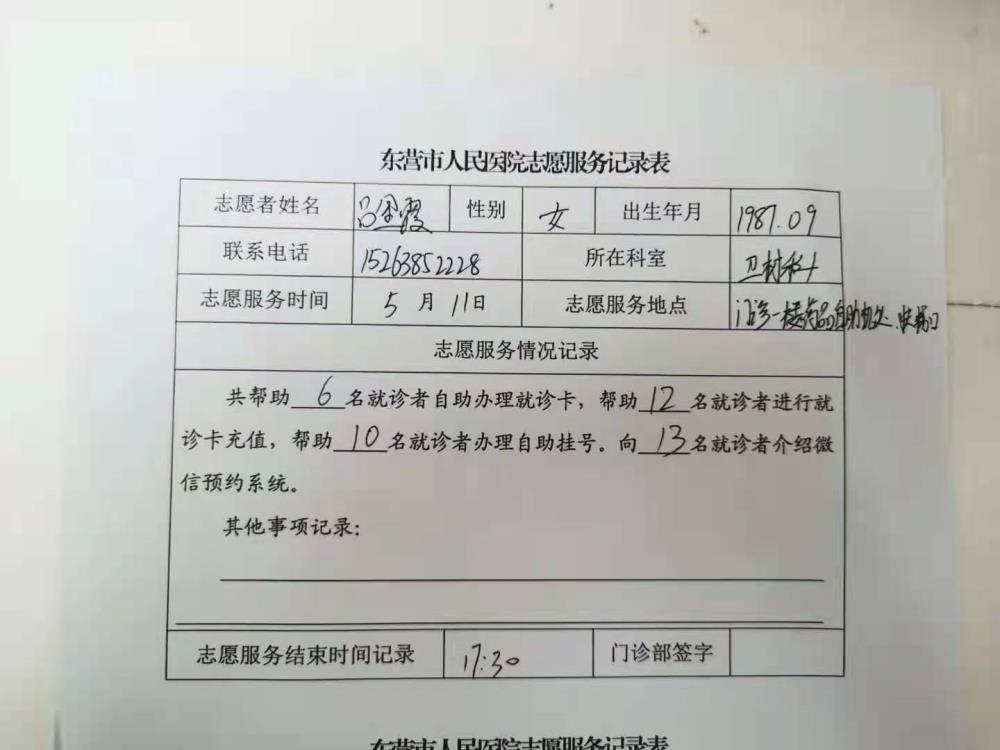 东营市人民医院志愿服务记录表
志愿者姓名 吕金霞 性别 女 出生年月 1987.09
联系电话 15263852228 所在科室 卫材科
志愿服务时间 5月11日 志愿服务地点 门诊一楼药品自助机处、扶梯口
志愿服务情况记录
共帮助6名就诊者自助办理就诊卡，帮助12名就诊者进行就
诊卡充值，帮助10名就诊者办理自助挂号。向13名就诊者介绍微
信预约系统。
其他事项记录：
志愿服务结束时间记录 17:30 门诊部签字
东营市人民医院志愿服务记录表